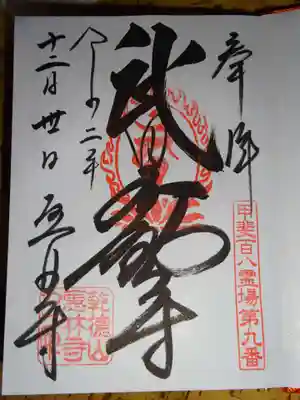 奉拝
甲斐百八霊場第九番
武田不動尊
令和二年
十二月丗日
恵林寺
乾徳山
恵林寺